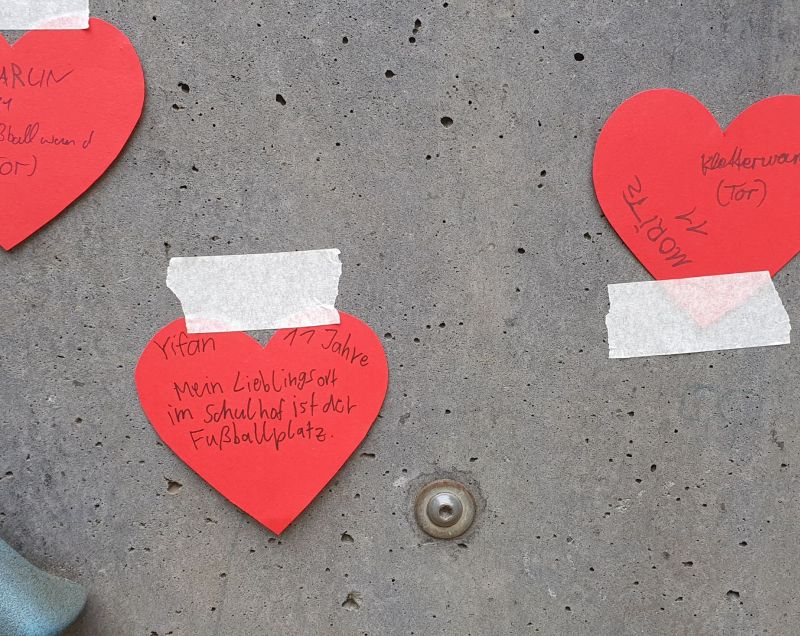 ARLIN
ßballwand
Tor)
Yifan 11 Jahre
Mein Lieblingsort
im Schulhof ist der
Fußballplatz.
Kletterwan
(Tor)
MORITZ
11